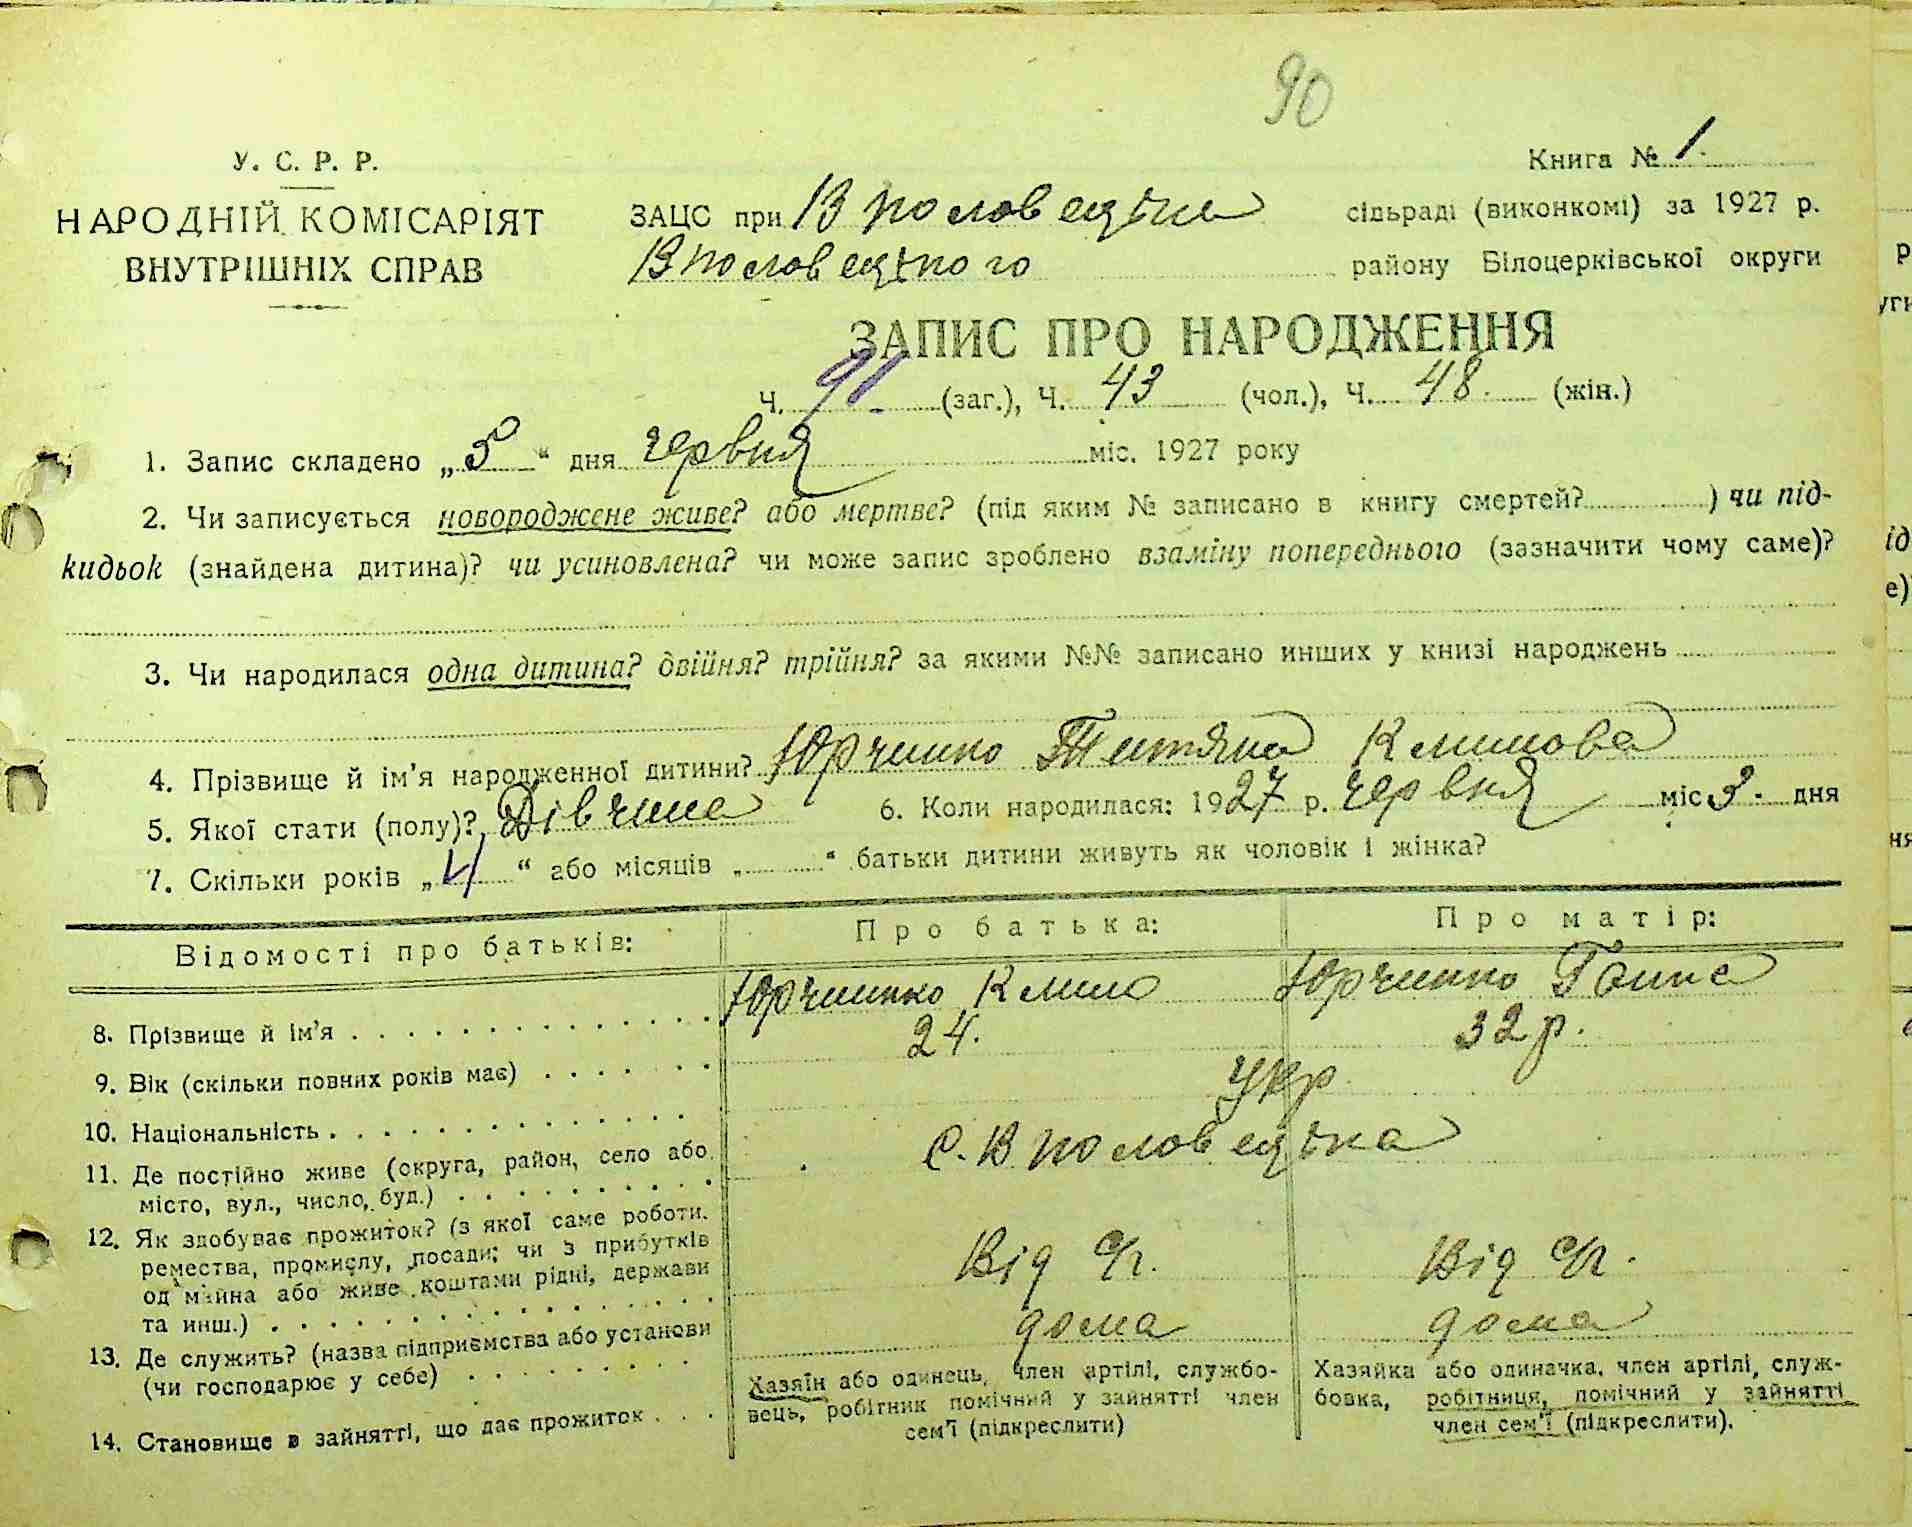 90
У. С. Р. Р.
НАРОДНІЙ КОМІСАРІЯТ
ВНУТРІШНІХ СПРАВ
Книга № 1.
ЗАЦС при В половецька сільраді (виконкомі) за 1927 р.
В половецького району Білоцерківської округи
ЗАПИС ПРО НАРОДЖЕННЯ
Ч. 91 (заг.), Ч. 43 (чол.), Ч. 48. (жін.)
1. Запис складено „5“ дня червня міс. 1927 року
2. Чи записується новороджене живе? або мертве? (під яким № записано в книгу смертей? ) чи під-
кидьок (знайдена дитина)? чи усиновлена? чи може запис зроблено взаміну попереднього (зазначити чому саме)?
3. Чи народилася одна дитина? двійня? трійня? за якими №№ записано инших у книзі народжень
4. Прізвище й ім'я народженної дитини? Юрченко Титяна Климова
5. Якої стати (полу)? Дівчина 6. Коли народилася: 1927 р. червня міс 3. дня
7. Скільки років „4“ або місяців „ “ батьки дитини живуть як чоловік і жінка?
Відомості про батьків: Про батька: Про матір:
8. Прізвище й ім'я Юрченко Клим Юрченко Ганна
9. Вік (скільки повних років має) 24. 32 р.
10. Національність Укр
11. Де постійно живе (округа, район, село або
місто, вул., число, буд.) С. В половецька
12. Як здобуває прожиток? (з якої саме роботи.
ремества, промислу, посади; чи з прибутків
од майна або живе коштами рідні, держави
та инш.) Від с/г. Від с/г.
13. Де служить? (назва підприємства або установи
(чи господарює у себе) дома дома
14. Становище в зайнятті, що дає прожиток
Хазяїн або одинець, член артілі, службо-
вець, робітник помічний у зайнятті член
сем'ї (підкреслити)
Хазяйка або одиначка, член артілі, служ-
бовка, робітниця, помічний у зайнятті
член сем'ї (підкреслити).